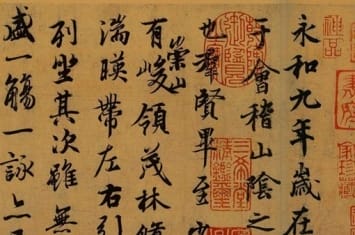 永和九年歲在
于會稽山陰之
也羣賢畢至少
有崇山峻領茂林脩
湍暎帶左右引
列坐其次雖無
盛一觴一詠亦